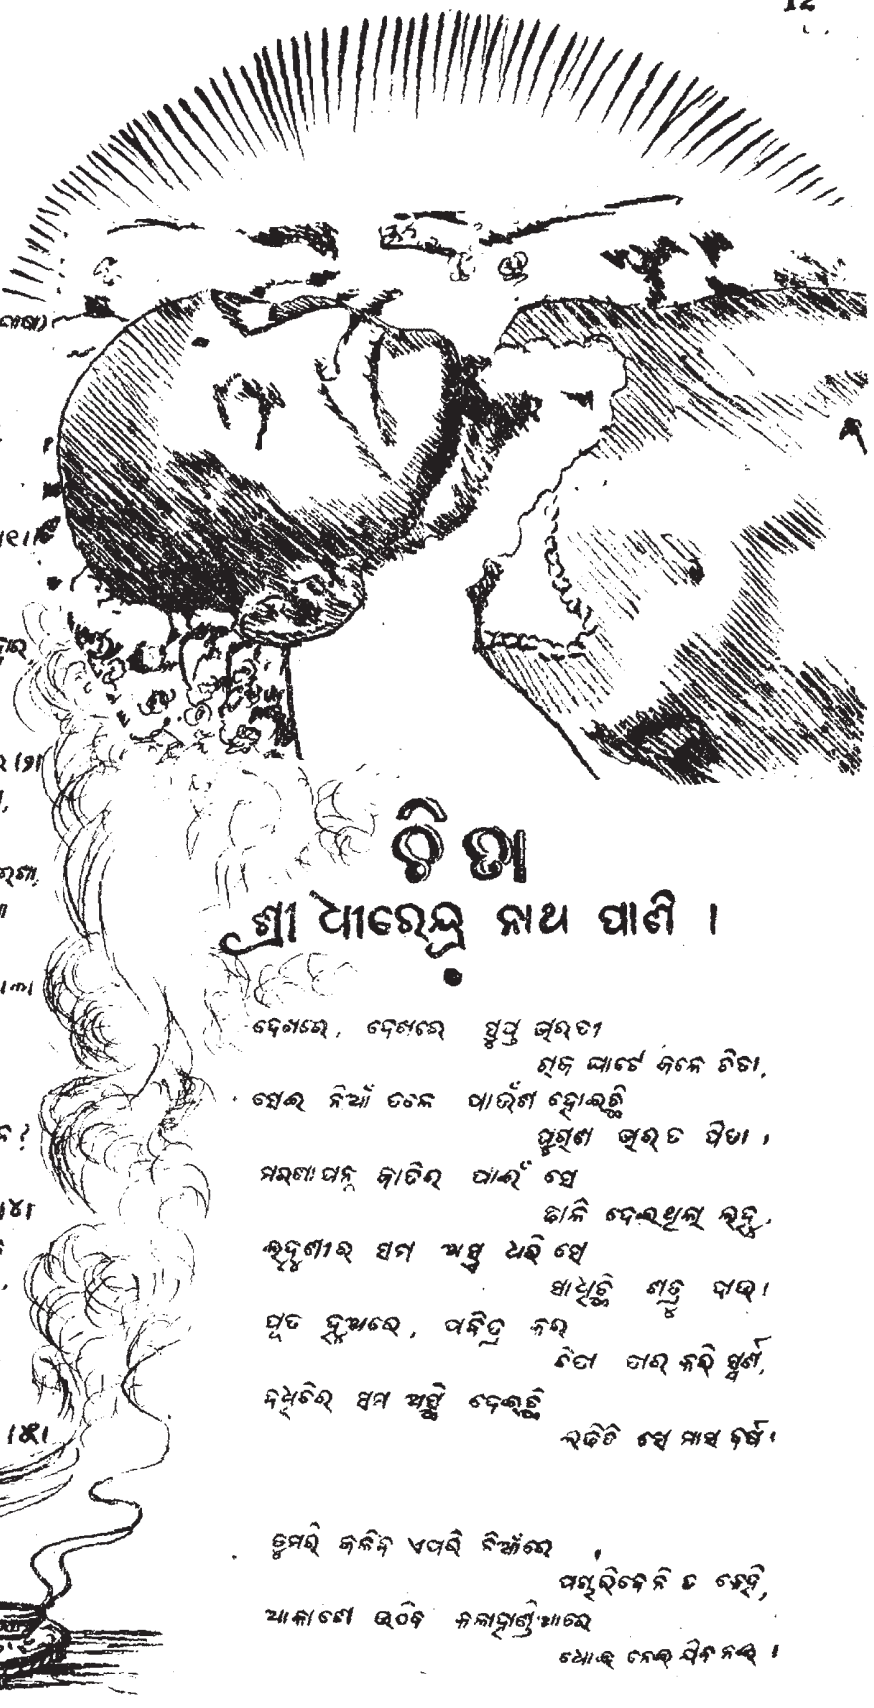 12
ଚିତା
ଶ୍ରୀ ଧୀରେନ୍ଦ୍ର ନାଥ ପାଣି ।
ଦେଖରେ, ଦେଖରେ ସୁପ୍ତ ଭାରତୀ
ରାଜ ଘାଟେ ଜଳେ ଚିତା,
ସେଇ ନିଆଁ ତଳେ ପାଉଁଶ ହୋଇଛି
ପୁରାଣ ଭାରତ ପିତା ।
ମରଣାପନ୍ନ ଜାତିର ପାଇଁ ସେ
ଢାଳି ଦେଇଥିଲା ଲହୁ,
ସମ ଅସ୍ତ୍ର ଧରି ସେ
ସାଧିଛି ଶତ୍ରୁ ଦାଉ ।
ପୂତ ହୁଅରେ, ପବିତ୍ର କର
ଚିତା ତାର କରି ସ୍ପର୍ଶ,
ଦଧିଚିର ସମ ଅସ୍ଥି ଦେଇଛି
ଲଢିଚି ସେ ମାସ ବର୍ଷ ।
ତୁମରି ଜଳିବ ଏପରି ନିଆଁରେ
ପଚାରିବେନି ତ କେହି,
ଆକାଶେ ଉଠିବ
ଧୋଇ ନେଇ ଯିବ ନଈ ।